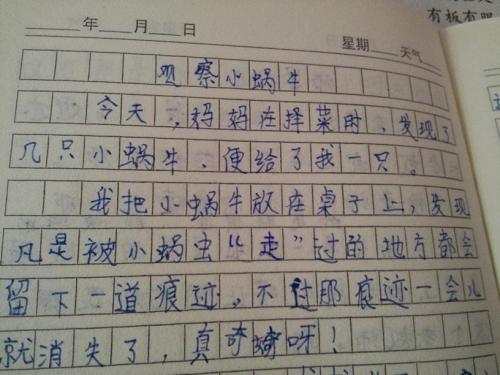 有板有眼
年 月 日
星期 天气
观察小蜗牛
今天,妈妈在择菜时,发现了
几只小蜗牛,便给了我一只。
我把小蜗牛放在桌子上,发现
凡是被小蜗虫“走”过的地方都会
留下一道痕迹。不过那痕迹一会儿
就消失了,真奇妙呀!